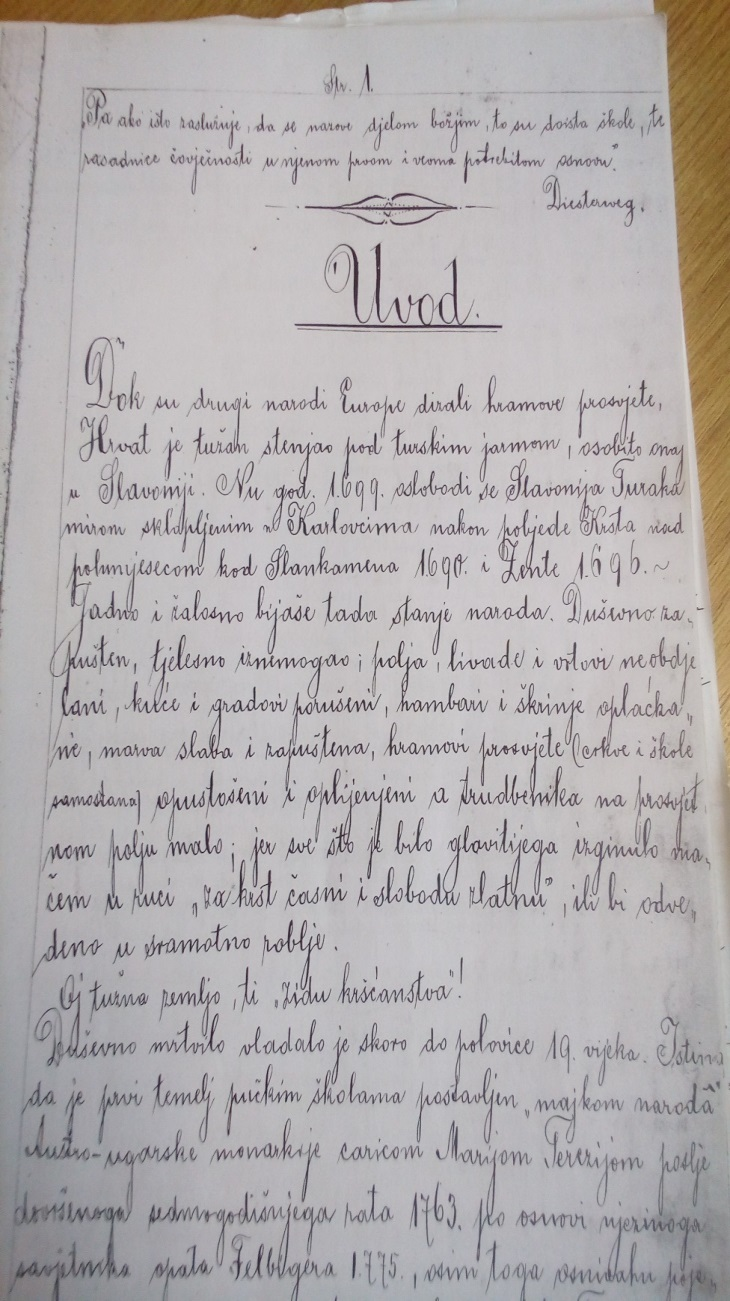 Str. 1.
„Pa ako išto zaslužuje, da se nazove djelom božjim, to su doista škole, te
rasadnice čovječnosti u njenom prvom i veoma potrebitom osnovu.“
Diesterweg.
Uvod.
Dok su drugi narodi Europe dizali hramove prosvjete,
Hrvat je tužan stenjao pod turskim jarmom, osobito onaj
u Slavoniji. Nu god. 1699. oslobodi se Slavonija Turaka
mirom sklopljenim u Karlovcima nakon pobjede Krsta nad
polumjesecom kod Slankamena 1690. i Zente 1696. ~
Jadno i žalosno bijaše tada stanje naroda. Duševno za„
pušten, tjelesno iznemogao; polja, livade i vrtovi neobdje„
lani, kuće i gradovi porušeni, hambari i škrinje opljačka„
ne, marva slaba i zapuštena, hramovi prosvjete (crkve i škole
samostana) opustošeni i oplijenjeni a trudbenika na prosvjet
nom polju malo; jer sve što je bilo glavitijega izginulo ma„
čem u ruci „za krst časni i slobodu zlatnu“, ili bi odve„
deno u sramotno roblje.
Oj tužna zemljo, ti „zidu kršćanstva“!
Duševno mrtvilo vladalo je skoro do polovice 19. vijeka. Istina
da je prvi temelj pučkim školama postavljen „majkom narodâ“
Austro-ugarske monarkije caricom Marijom Terezijom poslje
dovršenoga sedmogodišnjega rata 1763. po osnovi njezinoga
savjetnika opata Felbigera 1775., osim toga osnivahu poje„